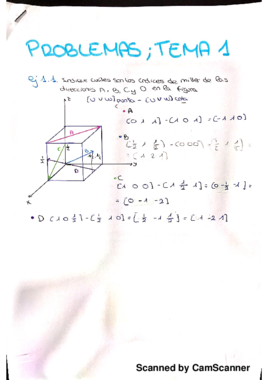 PROBLEMAS; TEMA 1
Ej 1.1. Indicar cuáles son los índices de miller de las
direcciones A, B, C y D en la figura
[U V W] punta - [U V W] cola
z
• A
[0 1 1] - [1 0 1] = [-1 1 0]
• B
[½ 1 ½] - [0 0 0] =
= [1 2 1]
y
x
A
B
C
D
• C
[1 0 0] - [1 ½ 1] = [0 -½ -1] =
= [0 -1 -2]
• D [1 0 ½] - [½ 1 0] = [½ -1 ½] = [1 -2 1]
Scanned by CamScanner